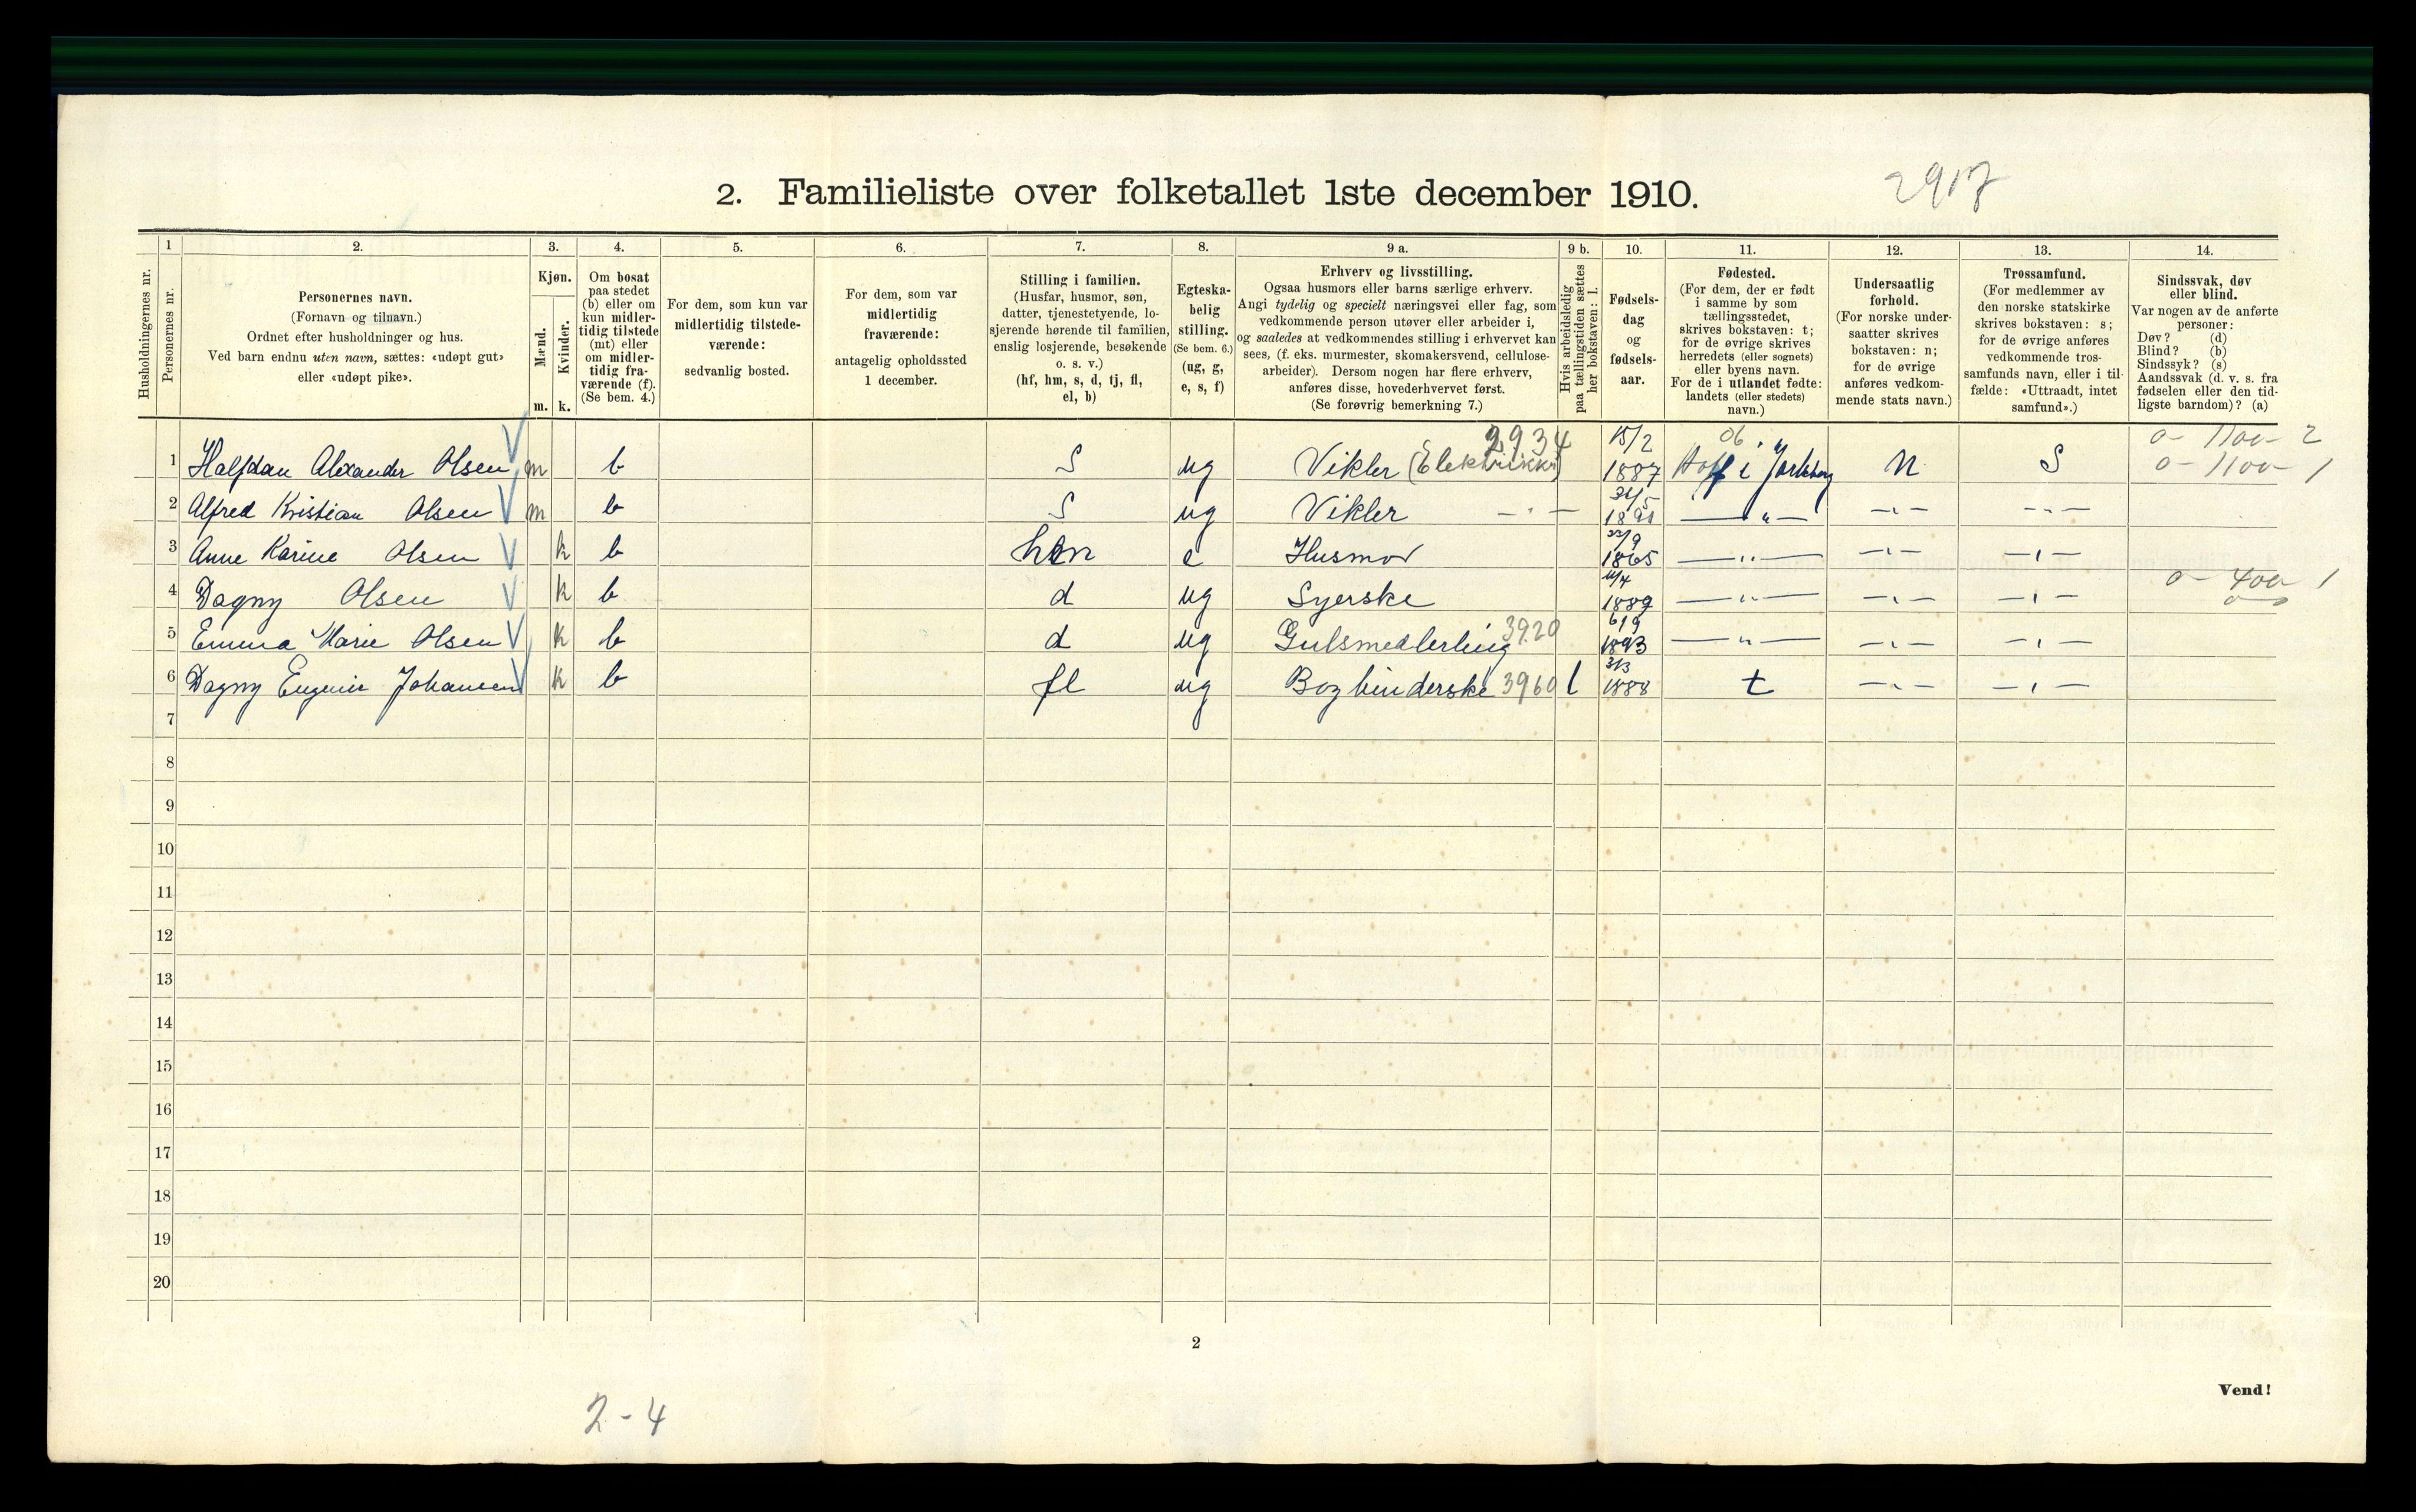 2. Familieliste over folketallet 1ste december 1910.
2917
Husholdningernes nr.
1
Personernes nr.
2.
Personernes navn.
(Fornavn og tilnavn.)
Ordnet efter husholdninger og hus.
Ved barn endnu uten navn, sættes: «udøpt gut»
eller «udøpt pike».
3.
Kjøn.
Mænd.
m.
Kvinder.
k.
4.
Om bosat
paa stedet
(b) eller om
kun midler-
tidig tilstede
(mt) eller
om midler-
tidig fra-
værende (f).
(Se bem. 4.)
5.
For dem, som kun var
midlertidig tilstede-
værende:
sedvanlig bosted.
6.
For dem, som var
midlertidig
fraværende:
antagelig opholdssted
1 december.
7.
Stilling i familien.
(Husfar, husmor, søn,
datter, tjenestetyende, lo-
sjerende hørende til familien,
enslig losjerende, besøkende
o. s. v.)
(hf, hm, s, d, tj, fl,
el, b)
8.
Egteska-
belig
stilling.
(Se bem. 6.)
(ug, g,
e, s, f)
9 a.
Erhverv og livsstilling.
Ogsaa husmors eller barns særlige erhverv.
Angi tydelig og specielt næringsvei eller fag, som
vedkommende person utøver eller arbeider i,
og saaledes at vedkommendes stilling i erhvervet kan
sees, (f. eks. murmester, skomakersvend, cellulose-
arbeider). Dersom nogen har flere erhverv,
anføres disse, hovederhvervet først.
(Se forøvrig bemerkning 7.)
9 b.
Hvis arbeidsledig
paa tællingstiden sættes
her bokstaven: l.
10.
Fødsels-
dag
og
fødsels-
aar.
11.
Fødested.
(For dem, der er født
i samme by som
tællingsstedet,
skrives bokstaven: t;
for de øvrige skrives
herredets (eller sognets)
eller byens navn.
For de i utlandet fødte:
landets (eller stedets)
navn.)
12.
Undersaatlig
forhold.
(For norske under-
saatter skrives
bokstaven: n;
for de øvrige
anføres vedkom-
mende stats navn.)
13.
Trossamfund.
(For medlemmer av
den norske statskirke
skrives bokstaven: s;
for de øvrige anføres
vedkommende tros-
samfunds navn, eller i til-
fælde: «Uttraadt, intet
samfund».)
14.
Sindssvak, døv
eller blind.
Var nogen av de anførte
personer:
Døv? (d)
Blind? (b)
Sindssyk? (s)
Aandssvak (d. v. s. fra
fødselen eller den tid-
ligste barndom)? (a)
2934 15/2 06 0- 1100- 2
1 Halfdan Alexander Olsen m b S ug Vikler (Elektrikker) 1887 Hoff i Jarlsberg N S 0- 1100- 1
2 Alfred Kristian Olsen m b S ug Vikler -"- 1891 -"- -"- -"-
3 Anne Karine Olsen k b hm e Husmor 1865 -"- -"- -"-
4 Dagny Olsen k b d ug Syerske 1889 -"- -"- -"- 0- 400- 1
5 Emma Marie Olsen k b d ug Gulsmedlerling 3920 1893 -"- -"- -"-
6 Dagny Eugenie Johansen k b fl ug Bogbinderske 3960 l 3/3 1888 t -"- -"-
7
8
9
10
11
12
13
14
15
16
17
18
19
20
2
Vend!
2-4